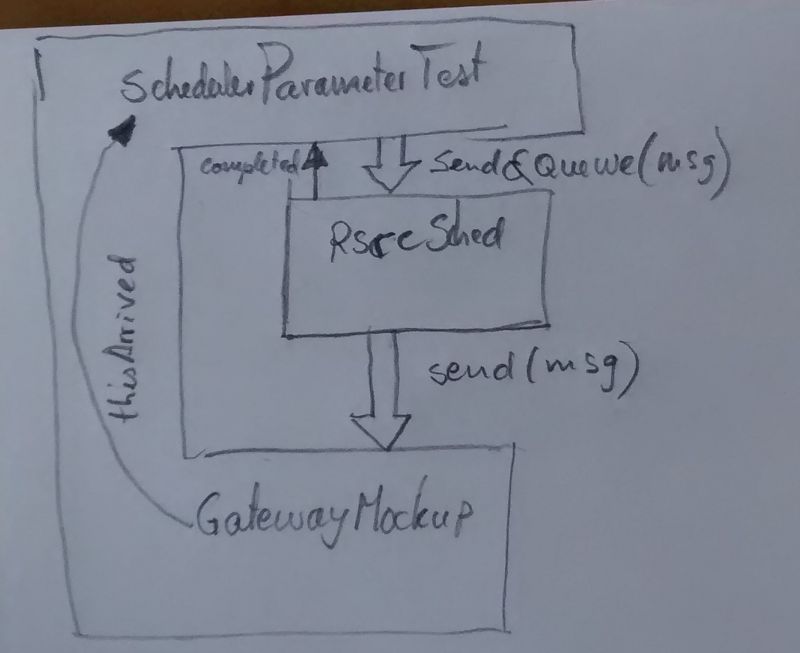 SchedulerParameterTest
completed
Send&Queue(msg)
RsrcSched
thisArrived
send(msg)
GatewayMockup